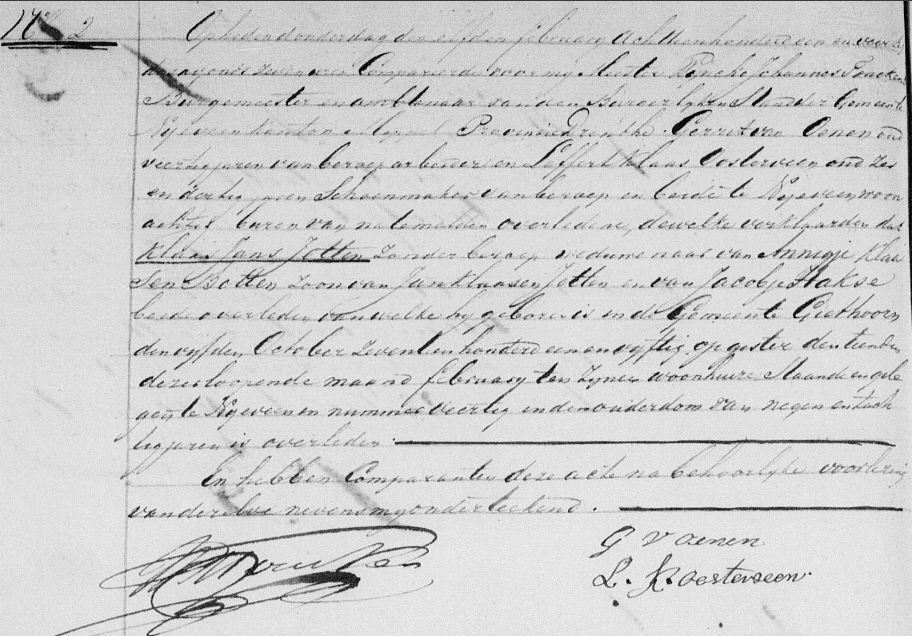 No 2
Op heden donderdag den elfden february Achttienhonderd een en veertig
des avonds zeven uren Compareerde voor my Meester Johannes Tonckens
Burgemeester en ambtenaar van den Burgerlyken Stand der Gemeente
Nyeveen kanton Meppel Provincie drenthe. Gerrit van Oenen oud
veertig jaren van beroep arbeider en Laffert Klaas Oosterveen oud zes
en dertig jaren Schoenmaker van beroep en beide te Nyeveen woon
achtig buren van natemelden overledene, dewelke verklaarden dat
Klaas Jans Jotten zonder beroep weduwenaar van Annigje Klaa
sen Botten zoon van Jan Klaassen Jotten en van Jacobje Hakse
beide overleden van welke hy geboren is in de Gemeente Giethoorn
den vyfden October zeventienhonderd een en vyftig op gister den tienden
dezer loopende maand february ten zynen woonhuize Staande en gele
gen te Nyeveen nummer veertig in den ouderdom van negen en tach
tig jaren is overleden.
En hebben Comparanten deze acte na behoorlyke voorlezing
van dezelve nevens my onderteekend.
G v oenen
L. K oosterveen